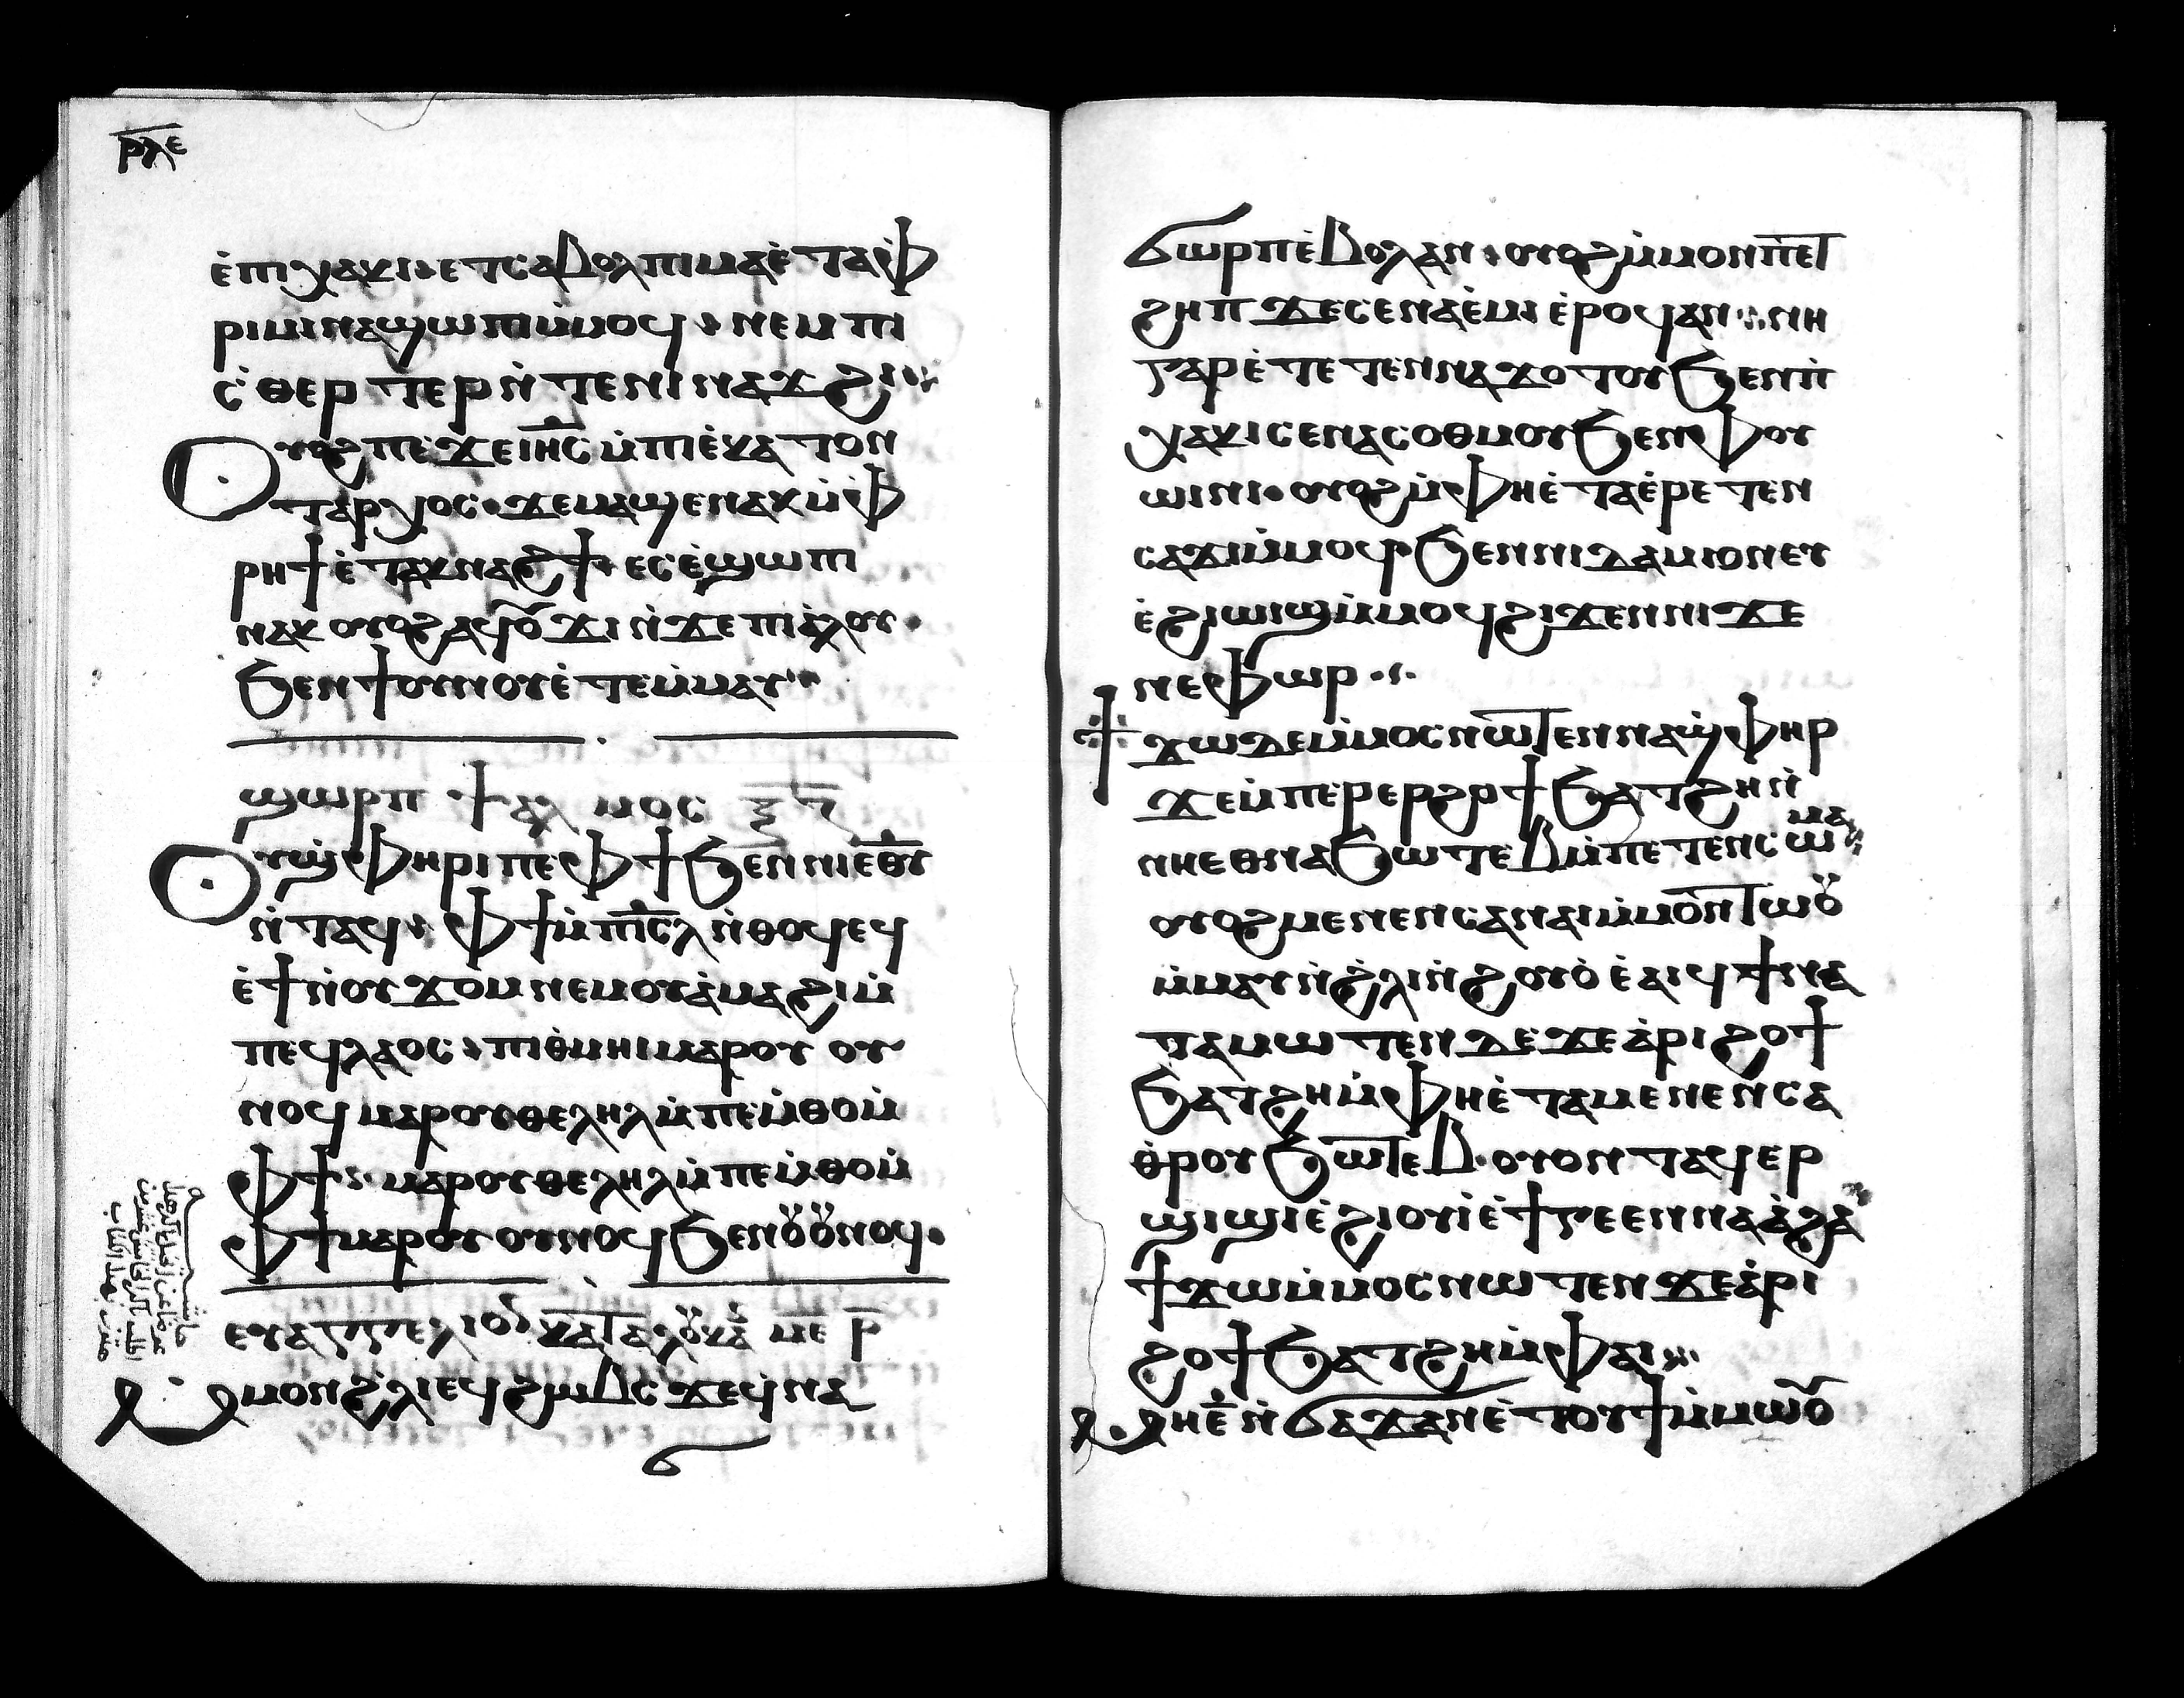 ⲣⲗⲉ
ⲉ̀ⲡⲓⲭⲁⲕⲓ ⲉⲧⲥⲁⲃⲟⲗ ⲡⲓⲙⲁ ⲉ̀ⲧⲁ ⲫ
ⲣⲓⲙⲓ ⲛⲁϣⲱⲡⲓ ⲙ̀ⲙⲟϥ ⲛⲉⲙ ⲡⲓ
ⲥ̀ⲑⲉⲣⲧⲉⲣ ⲛ̀ⲧⲉ ⲛⲓⲛⲁϫϩⲓ
Ⲟⲩⲟϩ ⲡⲉϫⲉ ⲓⲏⲥ ⲙ̀ⲡⲓⲉ̀ⲕⲁⲧⲟⲛ
ⲧⲁⲣⲭⲟⲥ ϫⲉ ⲙⲁϣⲉⲛⲁⲕ ⲙ̀ⲫ
ⲣⲏϯ ⲉ̀ⲧⲁⲕⲛⲁϩϯ ⲉⲥⲉ̀ϣⲱⲡⲓ
ⲛⲁⲕ ⲟⲩⲟϩ ⲁϥⲟ̄ϫⲁⲓ ⲛ̀ϫⲉ ⲡⲓⲁ̀ⲗⲟⲩ
ϧⲉⲛ ϯⲟⲩⲛⲟⲩ ⲉ̀ⲧⲉⲙ̀ⲙⲁⲩ
ϣⲱⲣⲡ ⲯⲁⲗⲙⲟⲥ ⲝ̄ⲍ̄
Ⲟⲩϣ̀ⲫⲏⲣⲓ ⲡⲉ ⲫϯ ϧⲉⲛ ⲛⲓⲉⲑⲩ
ⲛ̀ⲧⲁϥ ⲫϯ ⲙ̀ⲡⲓⲥ̄ⲗ ⲛ̀ⲑⲟϥ ⲉϥ
ⲉ̀ϯ ⲛ̀ⲟⲩϫⲟⲙ ⲛⲉⲙ ⲟⲩⲁ̀ⲙⲁϩⲓ ⲙ̀
ⲡⲉϥⲗⲁⲟⲥ ⲡⲓⲑ̀ⲙⲏⲓ ⲙⲁⲣⲟⲩ ⲟⲩ
ⲛⲟϥ ⲙⲁⲣⲟⲩⲑⲉⲗⲏⲗ ⲙ̀ⲡⲉⲙ̀ⲑⲟ ⲙ̀
ⲫϯ ⲙⲁⲣⲟⲩⲑⲉⲗⲏⲗ ⲙ̀ⲡⲉⲙ̀ⲑⲟ ⲙ̀
ⲫϯ ⲙⲁⲣⲟⲩ ⲟⲩⲛⲟϥ ϧⲉⲛ ⲟ̈ⲟ̈ⲛⲟϥ
ⲉⲩⲁⲅⲅⲉⲗⲓⲟⲛ ⲕⲁⲧⲁ ⲗⲟ̈ⲕⲁ ⲙ̄ⲉ ⲣ̄
Ⲙⲙⲟⲛ ϩ̀ⲗⲓ ⲉϥϩⲱⲃⲥ ϫⲉ ϥ̀ⲛⲁ
ϭ
ϭⲱⲣⲡ ⲉ̀ⲃⲟⲗ ⲁⲛ ⲟⲩⲟϩ ⲙ̀ⲙⲟⲛ ⲡⲉⲧ
ϩⲏⲡ ϫⲉ ⲥⲉⲛⲁⲉ̀ⲙⲓ ⲉ̀ⲣⲟϥ ⲁⲛ ⲛⲏ
ⲅⲁⲣ ⲉ̀ⲧⲉⲧⲉⲛⲛⲁϫⲟⲧⲟⲩ ϧⲉⲛ ⲡ̀
ⲭⲁⲕⲓ ⲥⲉⲛⲁⲥⲟⲑⲙⲟⲩ ϧⲉⲛ ⲫⲟⲩ
ⲱⲓⲛⲓ ⲟⲩⲟϩ ⲙ̀ⲫⲏ ⲉ̀ⲧⲁⲉ̀ⲣⲉⲧⲉⲛ
ⲥⲁϫⲓ ⲙ̀ⲙⲟϥ ϧⲉⲛ ⲛⲓⲇⲁⲙⲓⲟⲛ ⲉⲩ
ⲉ̀ϩⲓⲱⲓϣ ⲙ̀ⲙⲟϥ ϩⲓϫⲉⲛ ⲛⲓϫⲉ
ⲛⲉⲫⲱⲣ
Ϯϫⲱ ⲇⲉ ⲙ̀ⲙⲟⲥ ⲛⲱⲧⲉⲛ ⲛⲁϣ̀ⲫⲏⲣ
ϫⲉ ⲙ̀ⲡⲉⲣⲉⲣϩⲟϯ ϧⲁⲧϩⲏ ⲛ̀
ⲛⲏ ⲉⲑⲛⲁϧⲱⲧⲉⲃ ⲙ̀ⲡⲉⲧⲉⲛⲥⲱⲙⲁ
ⲟⲩⲟϩ ⲙⲉⲛⲉⲛⲥⲁ ⲛⲁⲓ ⲙ̀ⲙⲟⲛⲧⲱⲟ̈
ⲙ̀ⲙⲁⲩ ⲛ̀ϩ̀ⲗⲓ ⲛ̀ϩⲟⲩⲟ̀ ⲉ̀ⲁⲓϥ ϯⲛⲁ
ⲧⲁⲙⲱⲧⲉⲛ ⲇⲉ ϫⲉ ⲁ̀ⲣⲓϩⲟϯ
ϧⲁⲧϩⲏ ⲙ̀ⲫⲏ ⲉ̀ⲧⲁⲙⲉⲛⲉⲛⲥⲁ
ⲑ̀ⲣⲟⲩϧⲱⲧⲉⲃ ⲟⲩⲟⲛⲧⲁϥ ⲉⲣ
ϣⲓϣⲓ ⲉ̀ϩⲓⲟⲩⲓ̀ ⲉ̀ϯⲅⲉⲉⲛⲛⲁ ⲁ̀ϩⲁ
ϯϫⲱ ⲙ̀ⲙⲟⲥ ⲛⲱⲧⲉⲛ ϫⲉ ⲁ̀ⲣⲓ
ϩⲟϯ ϧⲁⲧϩⲏ ⲙ̀ⲫⲁⲓ
ⲙⲏ ⲉ̄ ⲛ̀ϭⲁϫ ⲁⲛ ⲉ̀ⲧⲟⲩϯ ⲙ̀ⲙⲱⲟ̄